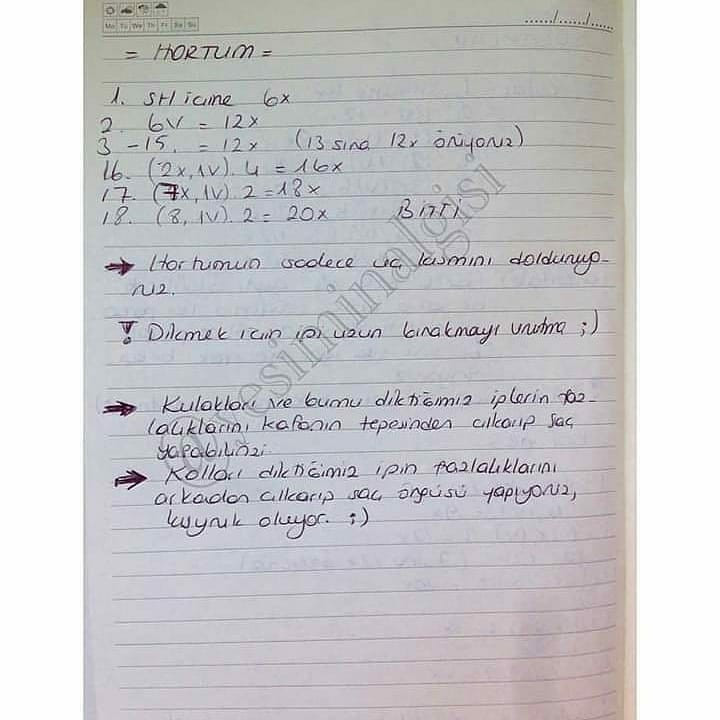 Mo Tu We Th Fr Sa Su
....../....../......
= HORTUM =
1. SH icine 6x
2. 6V = 12x
3 -15. = 12x (13 sıra 12x örüyoruz)
16. (2x,1V). 4 = 16x
17. (7x,1V). 2 = 18x
18. (8,1V). 2 = 20x BİTTİ
→ Hortumun sadece uç kısmını dolduruyo-
ruz.
! Dikmek için ipi uzun bırakmayı unutma ;)
→ Kulakları ve burnu diktiğimiz iplerin faz-
lalıklarını kafanın tepesinden çıkarıp saç
yapabiliriz.
→ Kolları diktiğimiz ipin fazlalıklarını
arkadan çıkarıp saç örgüsü yapıyoruz,
kuyruk oluyor. ;)
@yesiminalgisi